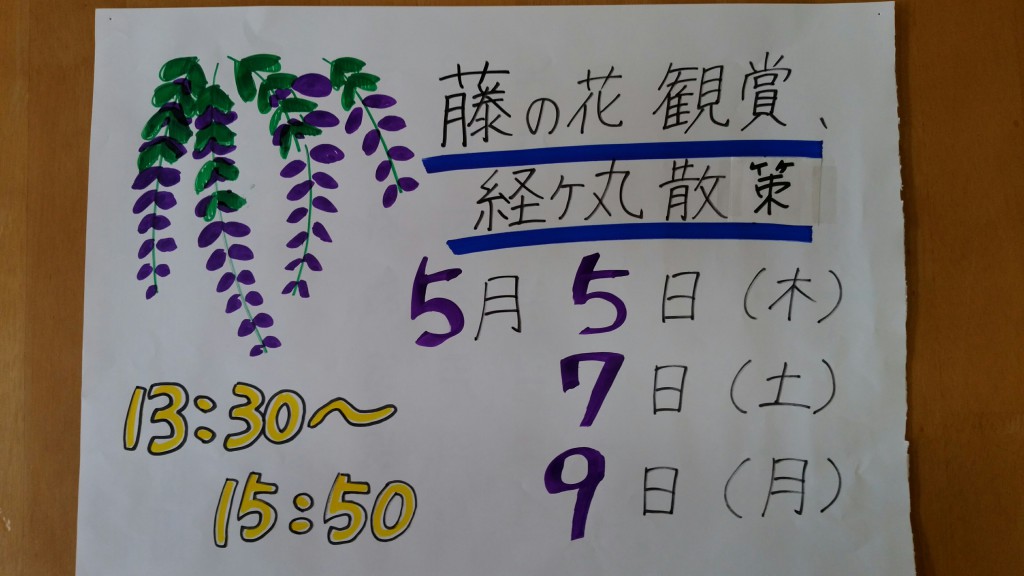 藤の花 観賞、
経ケ丸 散策
5月 5日 (木)
7日 (土)
9日 (月)
13:30〜
15:50